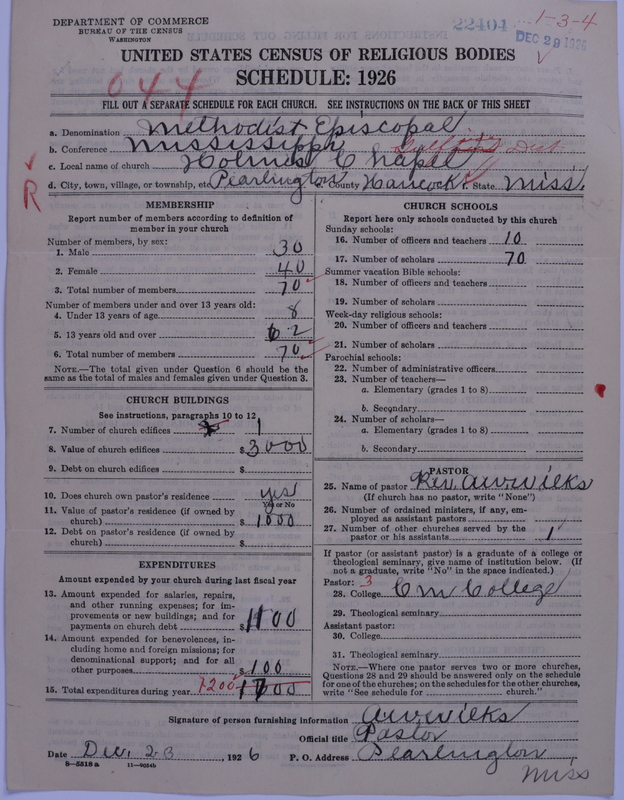 DEPARTMENT OF COMMERCE
BUREAU OF THE CENSUS
WASHINGTON
22404
1-3-4
DEC 29 1926
UNITED STATES CENSUS OF RELIGIOUS BODIES
SCHEDULE: 1926
044
FILL OUT A SEPARATE SCHEDULE FOR EACH CHURCH. SEE INSTRUCTIONS ON THE BACK OF THIS SHEET
a. Denomination Methodist Episcopal
b. Conference Mississippi
c. Local name of church Holmes Chapel
d. City, town, village, or township, etc. Pearlington e. County Hancock f. State Miss.
R
MEMBERSHIP
Report number of members according to definition of member in your church
Number of members, by sex:
1. Male 30
2. Female 40
3. Total number of members 70
Number of members under and over 13 years old:
4. Under 13 years of age 8
5. 13 years old and over 62
6. Total number of members 70
NOTE.—The total given under Question 6 should be the same as the total of males and females given under Question 3.
CHURCH BUILDINGS
See instructions, paragraphs 10 to 12
7. Number of church edifices 1
8. Value of church edifices $ 3000
9. Debt on church edifices $
10. Does church own pastor's residence yes
Yes or No
11. Value of pastor's residence (if owned by church) $ 1000
12. Debt on pastor's residence (if owned by church) $
EXPENDITURES
Amount expended by your church during last fiscal year
13. Amount expended for salaries, repairs, and other running expenses; for improvements or new buildings; and for payments on church debt $ 1100
14. Amount expended for benevolences, including home and foreign missions; for denominational support; and for all other purposes $ 100
15. Total expenditures during year 1200
CHURCH SCHOOLS
Report here only schools conducted by this church
Sunday schools:
16. Number of officers and teachers 10
17. Number of scholars 70
Summer vacation Bible schools:
18. Number of officers and teachers
19. Number of scholars
Week-day religious schools:
20. Number of officers and teachers
21. Number of scholars
Parochial schools:
22. Number of administrative officers
23. Number of teachers—
a. Elementary (grades 1 to 8)
b. Secondary
24. Number of scholars—
a. Elementary (grades 1 to 8)
b. Secondary
PASTOR
25. Name of pastor Rev. A.W. Wilks
(If church has no pastor, write "None")
26. Number of ordained ministers, if any, employed as assistant pastors
27. Number of other churches served by the pastor or his assistants 1
If pastor (or assistant pastor) is a graduate of a college or theological seminary, give name of institution below. (If not a graduate, write "No" in the space indicated.)
Pastor: 3
28. College C M College
29. Theological seminary
Assistant pastor:
30. College
31. Theological seminary
NOTE.—Where one pastor serves two or more churches, Questions 28 and 29 should be answered only on the schedule for one of the churches; on the schedules for the other churches, write "See schedule for church."
Signature of person furnishing information A.W. Wilks
Official title Pastor
Date Dec. 23, 1926 P. O. Address Pearlington
Miss
8-5518a 11-9024b